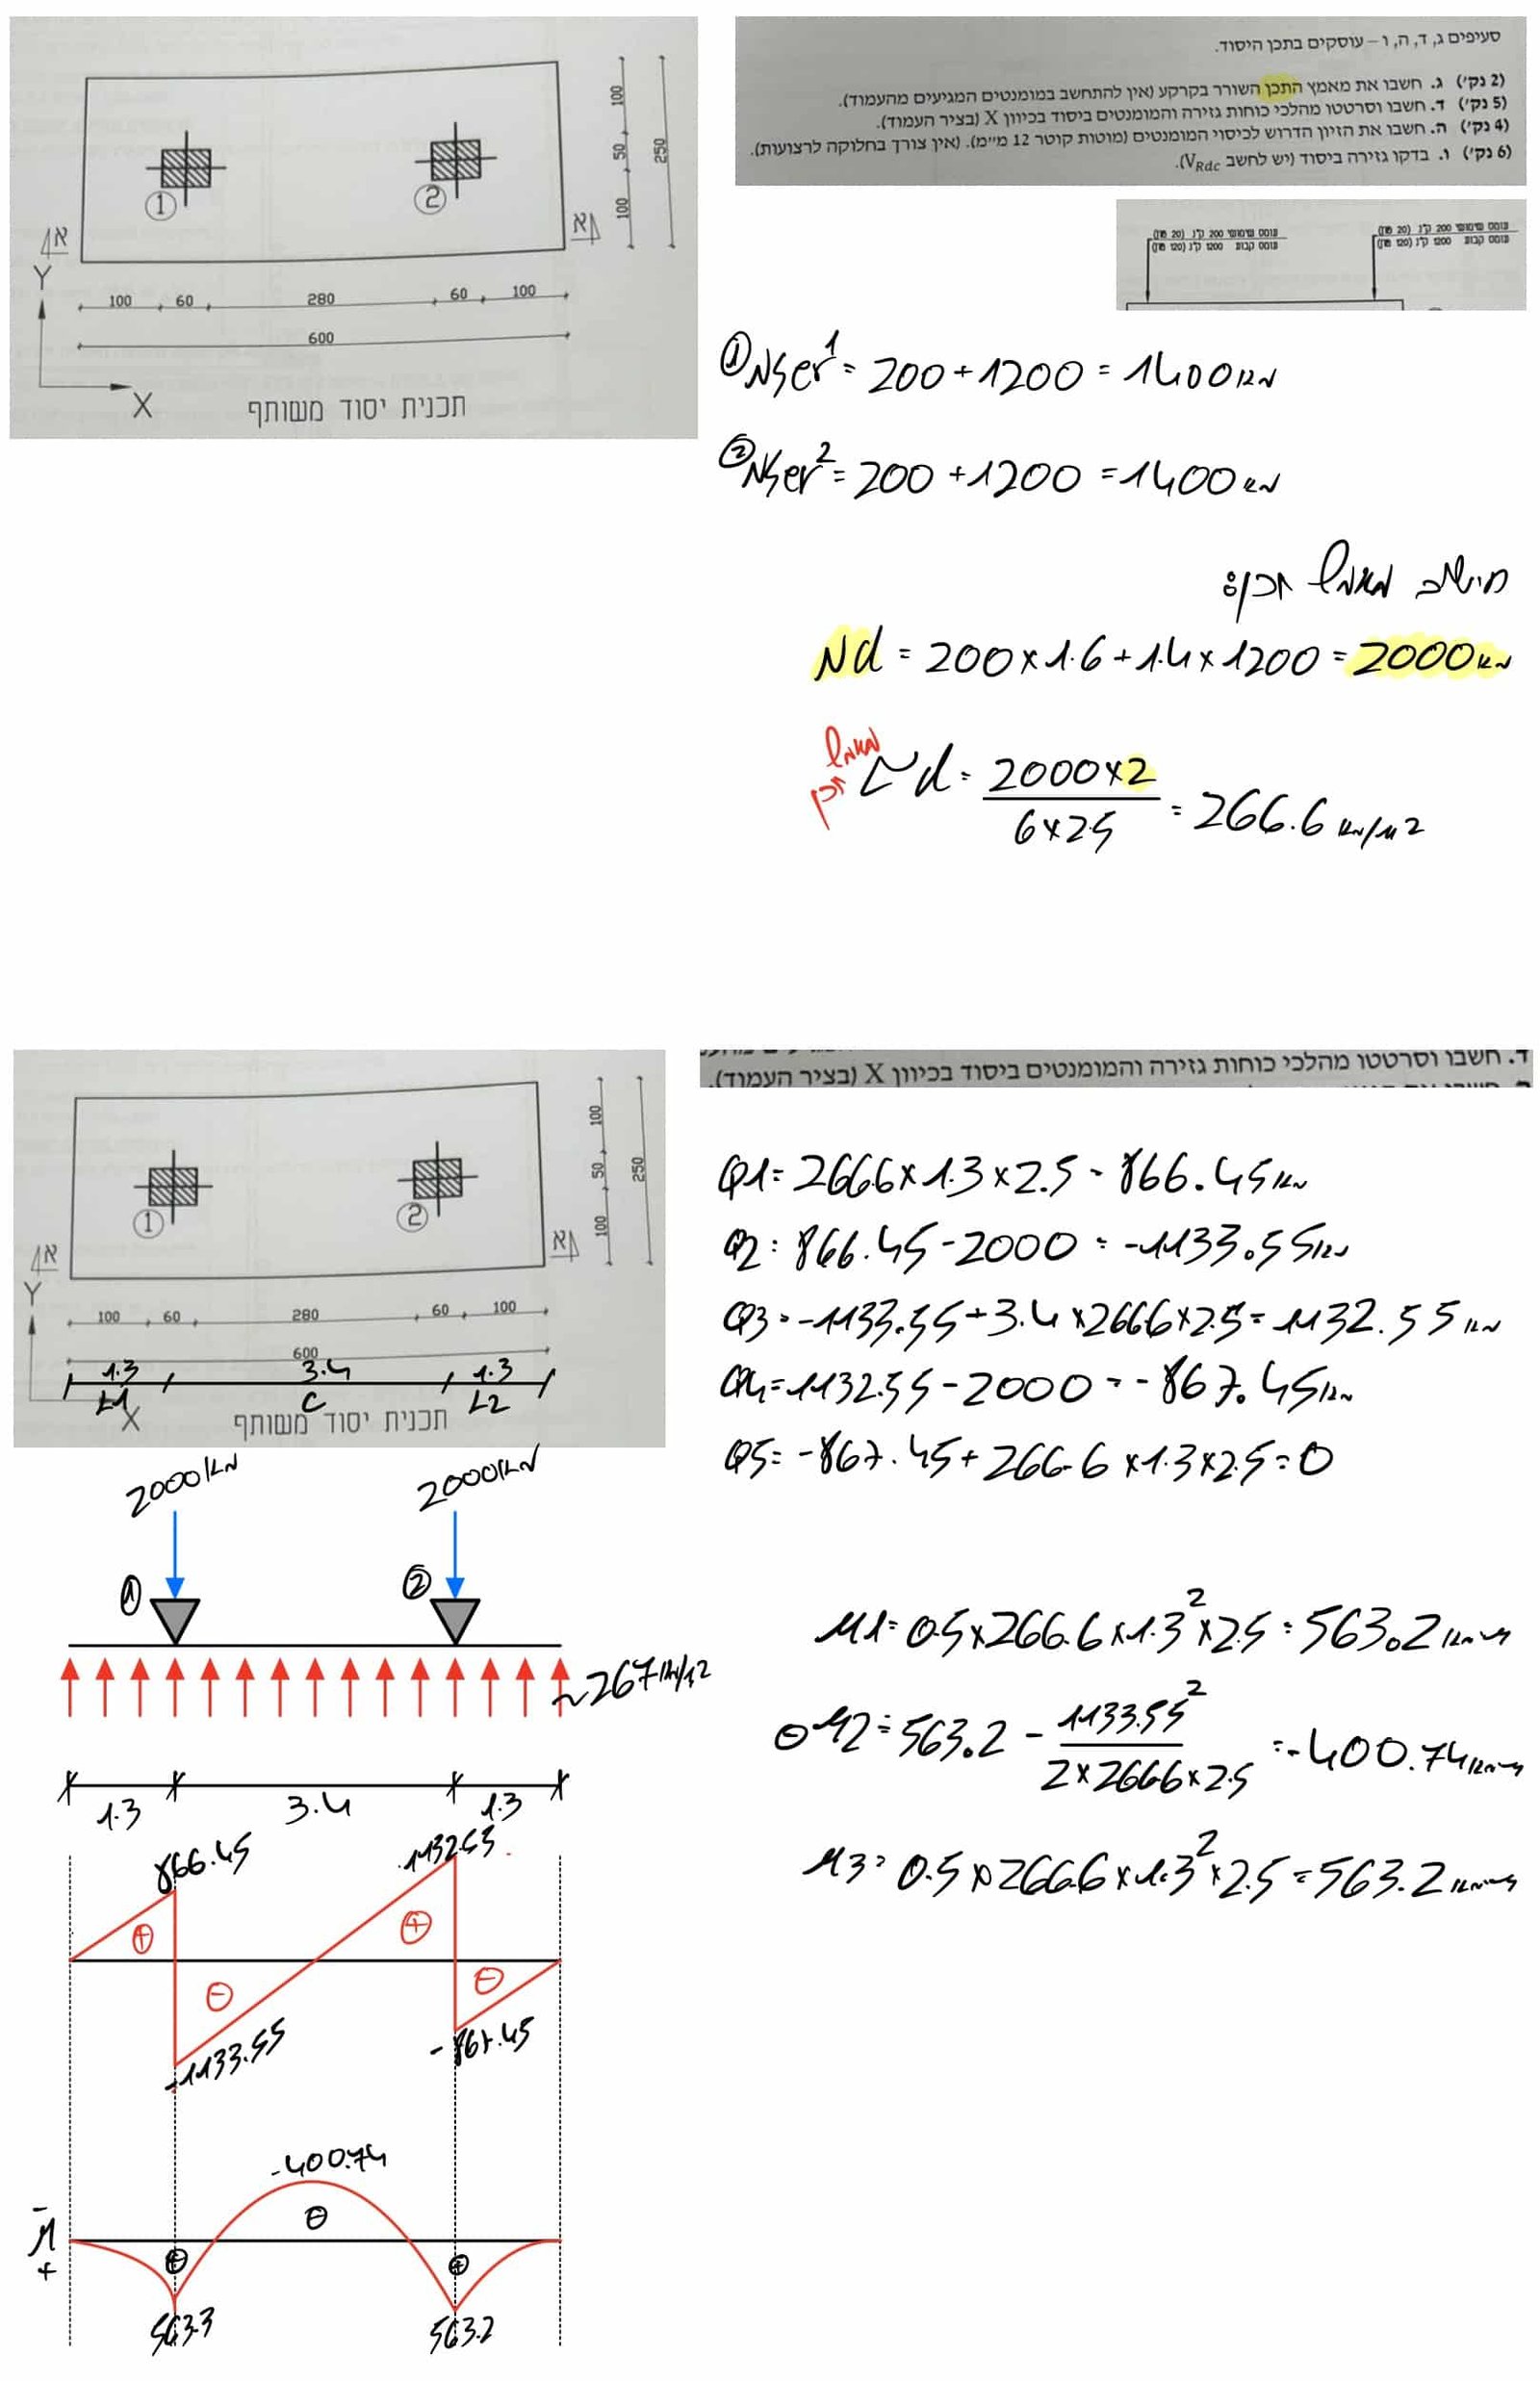 סעיפים ג, ד, ה, ו – עוסקים בתכן היסוד.
(2 נק') ג. חשבו את מאמץ התכן השורר בקרקע (אין להתחשב במומנטים המגיעים מהעמוד).
(5 נק') ד. חשבו וסרטטו מהלכי כוחות גזירה והמומנטים ביסוד בכיוון X (בציר העמוד).
(4 נק') ה. חשבו את הזיון הדרוש לכיסוי המומנטים (מוטות קוטר 12 מ"מ). (אין צורך בחלוקה לרצועות).
(6 נק') ו. בדקו גזירה ביסוד (יש לחשב VRdc).
1 2
א א
100 50 100
250
Y
100 60 280 60 100
600
X
תכנית יסוד משותף
עומס שימושי 200 ק"נ (20 טון)
עומס קבוע 1200 ק"נ (120 טון)
עומס שימושי 200 ק"נ (20 טון)
עומס קבוע 1200 ק"נ (120 טון)
① Nser¹ = 200 + 1200 = 1400 kN
② Nser² = 200 + 1200 = 1400 kN
חישוב מאמץ תכן:
Nd = 200 × 1.6 + 1.4 × 1200 = 2000 kN
מאמץ תכן
d = 2000×2 / 6×2.5 = 266.6 kN/M2
ד. חשבו וסרטטו מהלכי כוחות גזירה והמומנטים ביסוד בכיוון X (בציר העמוד).
1 2
א א
100 50 100
250
Y
100 60 280 60 100
600
1.3 3.4 1.3
L1 C L2
X
תכנית יסוד משותף
Q1 = 266.6 × 1.3 × 2.5 = 866.45 kN
Q2 = 866.45 - 2000 = -1133.55 kN
Q3 = -1133.55 + 3.4 × 266.6 × 2.5 = 1132.55 kN
Q4 = 1132.55 - 2000 = -867.45 kN
Q5 = -867.45 + 266.6 × 1.3 × 2.5 = 0
M1 = 0.5 × 266.6 × 1.3² × 2.5 = 563.2 kN·m
⊖ M2 = 563.2 - 1133.55² / 2 × 266.6 × 2.5 = -400.74 kN·m
M3 = 0.5 × 266.6 × 1.3² × 2.5 = 563.2 kN·m
2000 kN 2000 kN
① ②
~267 kN/M2
1.3 3.4 1.3
866.45 1132.55
+ - + -
-1133.55 -867.45
-400.74
-
M
+
+ - +
563.3 563.2